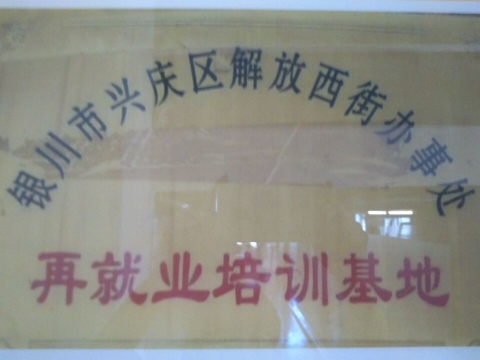 银川市兴庆区解放西街办事处
再就业培训基地